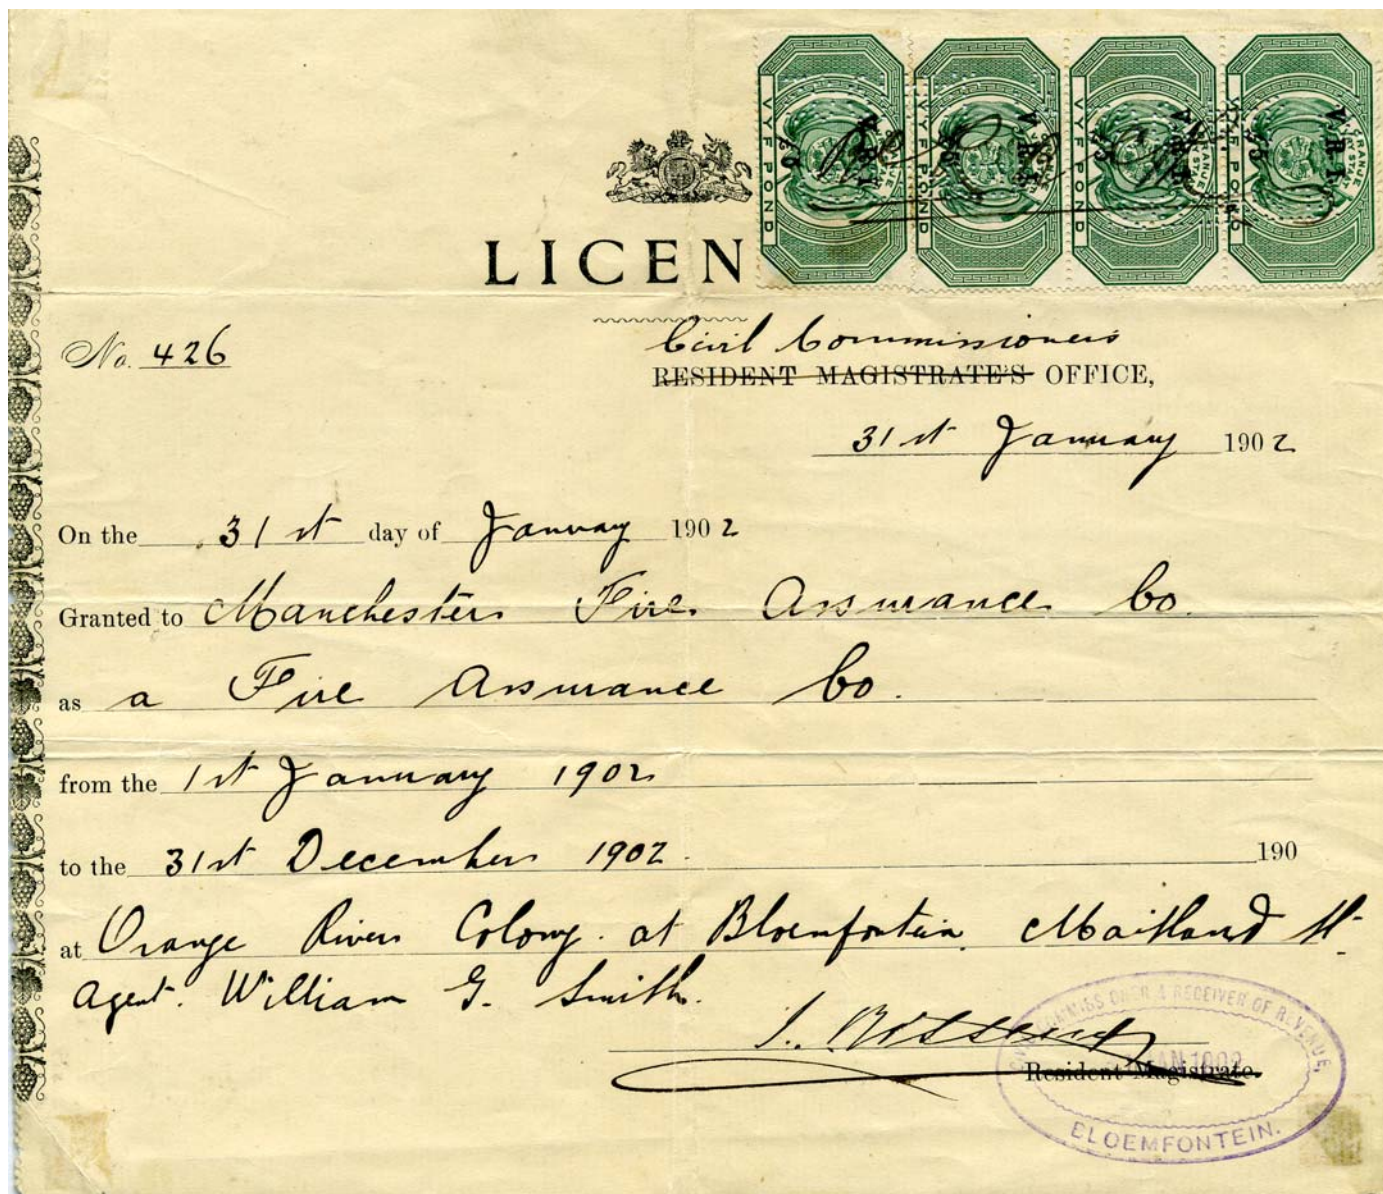 VYF POND VYF POND VYF POND VYF POND
ORANJE VRIJ STAAT
V.R.I. V.R.I. V.R.I. V.R.I.
£5 £5 £5 £5
LICEN
No. 426
Civil Commissioners
RESIDENT MAGISTRATE'S OFFICE,
31st January 1902
On the 31st day of January 1902
Granted to Manchester Fire Assurance Co.
as a Fire Assurance Co.
from the 1st January 1902
to the 31st December 1902. 190
at Orange River Colony. at Bloemfontein. Maitland St.
Agent. William G. Smith.
Resident Magistrate.
CIVIL COMMISSIONER & RECEIVER OF REVENUE,
JAN 1902
BLOEMFONTEIN.